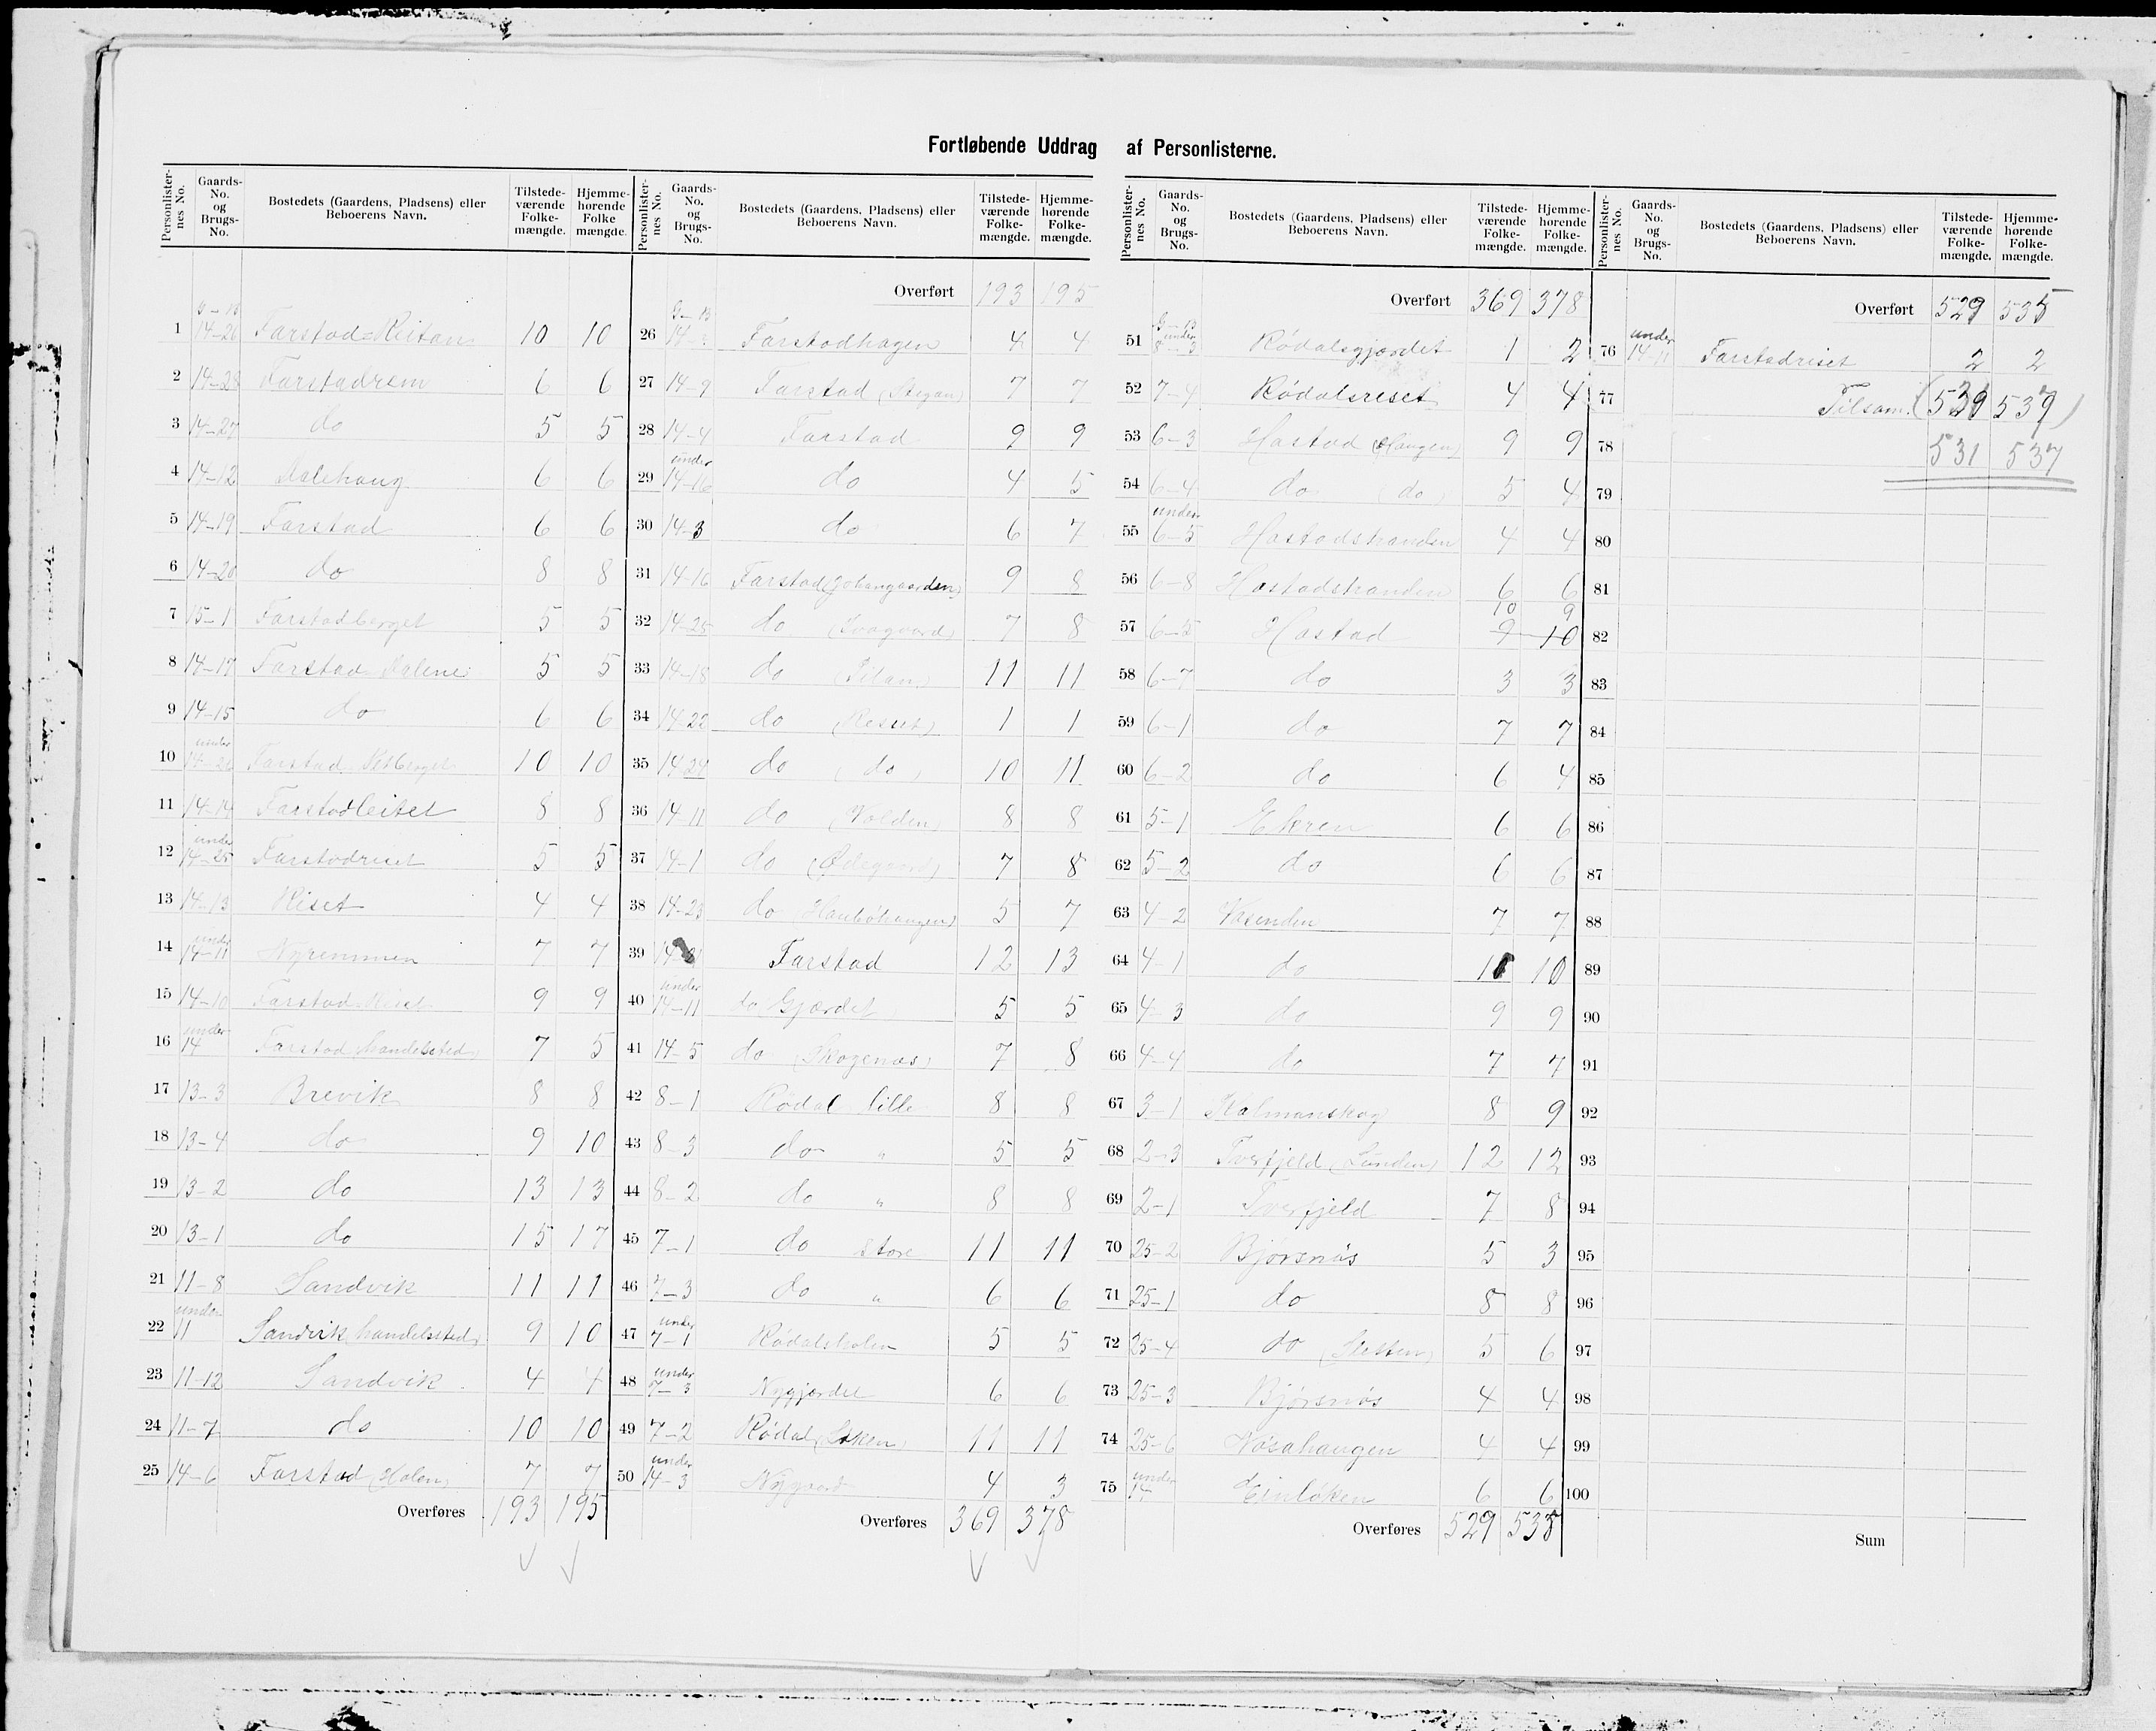 Fortløbende Uddrag af Personlisterne.
Personlister-nes No. Gaards-No. og Brugs-No. Bostedets (Gaardens, Pladsens) eller Beboerens Navn. Tilstede-værende Folke-mængde. Hjemme-hørende Folke mængde.
G–B
1 14–26 Farstad-Reitan 10 10
2 14–28 Farstadrem 6 6
3 14–27 do 5 5
4 14–12 Dalehaug 6 6
5 14–19 Farstad 6 6
6 14–20 do 8 8
7 15–1 Farstadberget 5 5
8 14–17 Farstad Dalene 5 5
9 14–15 do 6 6
10 under Farstad 10 10
11 14–14 Farstadleitet 8 8
12 under 14–25 Farstadriset 5 5
13 14–13 Riset 4 4
14 under 14–11 Nyremmen 7 7
15 14–10 Farstad Riset 9 9
16 under 14 Farstad handelssted 7 5
17 13–3 Brevik 8 8
18 13–4 do 9 10
19 13–2 do 13 13
20 13–1 do 15 17
21 11–8 Sandvik 11 11
22 under 11 Sandvik handelssted 9 10
23 11–12 Sandvik 4 4
24 11–7 do 10 10
25 14–6 Farstad (Holen) 7 7
Overføres 193 195
Personlister-nes No. Gaards-No. og Brugs-No. Bostedets (Gaardens, Pladsens) eller Beboerens Navn. Tilstede-værende Folke-mængde. Hjemme-hørende Folke-mængde.
Overført 193 195
G–B
26 Farstadhagen 4 4
27 14–9 Farstad (Stegan) 7 7
28 14–4 Farstad 9 9
29 under 14–16 do 4 5
30 14–3 do 6 7
31 14–16 Farstad (Johangaarden) 9 8
32 14–25 do (Ivagaard) 7 8
33 14–18 do 11 11
34 14–22 do (Reset) 1 1
35 14–24 do (do) 10 11
36 14–11 do (Volden) 8 8
37 14–1 do (Ødegaard) 7 8
38 14–23 do (Haubøhaugen) 5 7
39 Farstad 12 13
40 under 14–11 do (Gjærdet) 5 5
41 14–5 do (Skogenæs) 7 8
42 8–1 Rødal lille 8 8
43 8–3 do " 5 5
44 8–2 do " 8 8
45 7–1 do store 11 11
46 7–3 do " 6 6
47 under 7–1 Rødalsholen 5 5
48 under 7–3 Nygjerdet 6 6
49 7–2 Rødal (Løken) 11 11
50 under 14–3 Nygaard 4 3
Overføres 369 378
Personlister-nes No. Gaards-No. og Brugs-No. Bostedets (Gaardens, Pladsens) eller Beboerens Navn. Tilstede-værende Folke-mængde. Hjemme-hørende Folke-mængde.
Overført 369 378
G–B
51 under 8–3 Rødalsgjærdet 1 2
52 7–4 Rødalsreset 4 4
53 6–3 Hastad (Haugen) 9 9
54 6–4 do (do) 5 4
55 under 6–5 Hastadstranden 4 4
56 6–8 Hastadstranden 6 6
10 9
57 6–5 Hastad 9 10
58 6–7 do 3 3
59 6–1 do 7 7
60 6–2 do 6 4
61 5–1 Ekren 6 6
62 5–2 do 6 6
63 4–2 Vasenden 7 7
64 4–1 do 10
65 4–3 do 9 9
66 4–4 do 7 7
67 3–1 Halmanskog 8 9
68 2–3 Tverfjeld (Lunden) 12 12
69 2–1 Tverfjeld 7 8
70 25–2 Bjørsnøs 5 3
71 25–1 do 8 8
72 25–4 do (Sletten) 5 6
73 25–3 Bjørsnøs 4 4
74 25–6 Nøsahaugen 4 4
75 under 14 Einløken 6 6
Overføres 529 535
Personlister-nes No. Gaards-No. og Brugs-No. Bostedets (Gaardens, Pladsens) eller Beboerens Navn. Tilstede-værende Folke-mængde. Hjemme-hørende Folke-mængde.
Overført 529 535
76 under 14–11 Farstadriset 2 2
77 Tilsam. (539 539)
78 531 537
79
80
81
82
83
84
85
86
87
88
89
90
91
92
93
94
95
96
97
98
99
100
Sum